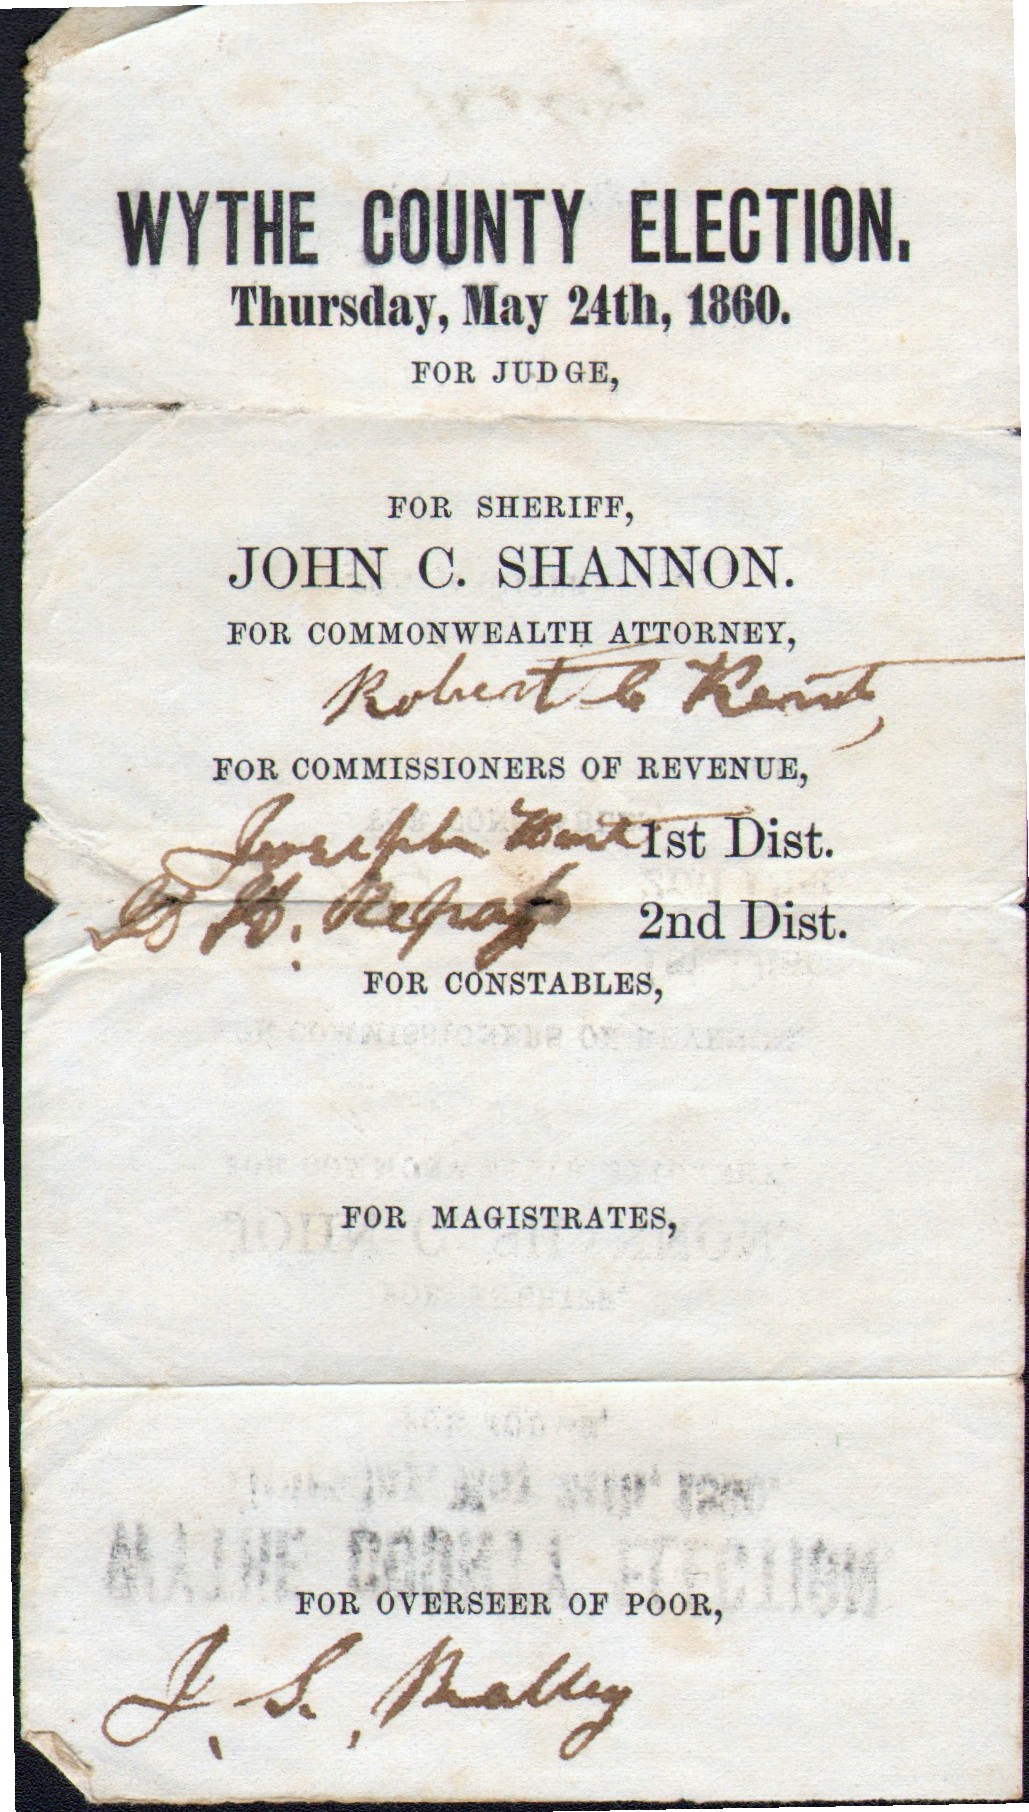 WYTHE COUNTY ELECTION.
Thursday, May 24th, 1860.
FOR JUDGE,
FOR SHERIFF,
JOHN C. SHANNON.
FOR COMMONWEALTH ATTORNEY,
Robert C Kent,
FOR COMMISSIONERS OF REVENUE,
Joseph 1st Dist.
H. Repass 2nd Dist.
FOR CONSTABLES,
FOR MAGISTRATES,
FOR OVERSEER OF POOR,
J. S.